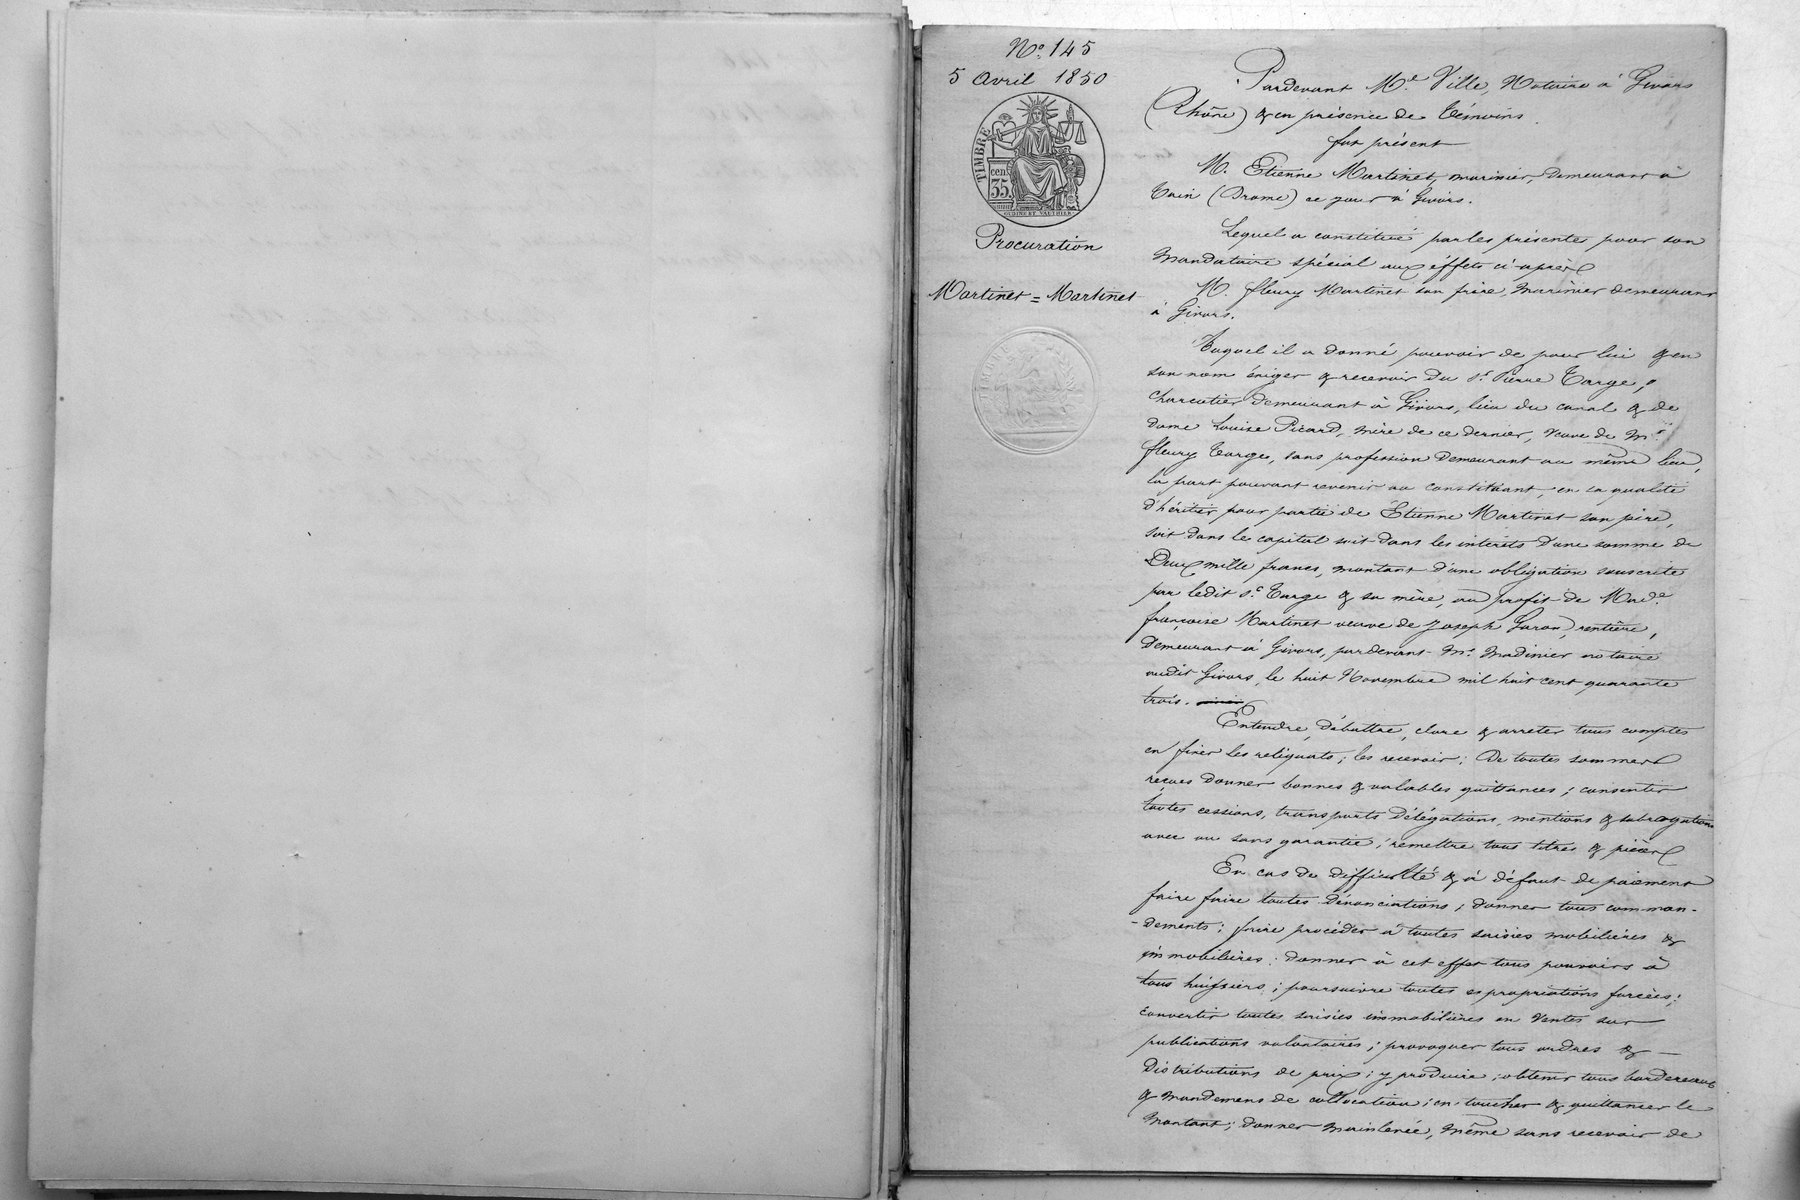 N.° 145
5 Avril 1850
TIMBRE
cent.
35.
OUDINE ET VAUTHIER
Procuration
Martinet = Martinet
TIMBRE
Pardevant M.e Ville, Notaire à Givors
(Rhône) & en présence de témoins
fut présent
M. Etienne Martinet, marinier, demeurant à
Tain (Drome) ce jour à Givors.
Lequel a constitué par les présente pour son
Mandataire spécial aux éffets ci après
M. fleury Martinet son frère, Marinier demeurant
à Givors.
Auquel il a donné pouvoir de pour lui & en
son nom éxiger & recevoir du s.r Pierre Targe,
charcutier demeurant à Givors, lieu du canal & de
dame Louise Picard, mère de ce dernier, veuve de M.r
fleury Targe, sans profession demeurant au même lieu,
la part pouvant revenir au constituant, en sa qualité
d'héritier pour partie de Etienne Martinet son père,
soit dans le capital soit dans les intérêts d'une somme de
Deux mille francs, montant d'une obligation souscrite
par ledit s.r Targe & sa mère, au profit de Mad.e
françoise Martinet veuve de Joseph Garon, rentière,
demeurant à Givors, pardevant M.e Madinier notaire
audit Givors, le huit Novembre mil huit cent quarante
trois.
Entendre, débattre, clore & arrêter tous comptes
en fixer les reliquats; les recevoir; De toutes sommes
reçues donner bonnes & valables quittances; consentir
toutes cessions, transports délégations, mentions & subrogations
avec ou sans garantie; remettre tous titres & pièces
En cas de difficulté & à défaut de paiement
faire faire toutes dénonciations; donner tous comman-
-dements; faire procéder à toutes saisies mobilières &
immobilières; donner à cet effet tous pouvoirs à
tous huissiers; poursuivre toutes expropriations forcées;
convertir toutes saisies immobilières en ventes sur
publications volontaires; provoquer tous ordres & —
distributions de prix; y produire; obtenir tous bordereaux
& mandemens de collocation; en toucher & quittancer le
montant; donner mainlevée, même sans recevoir de